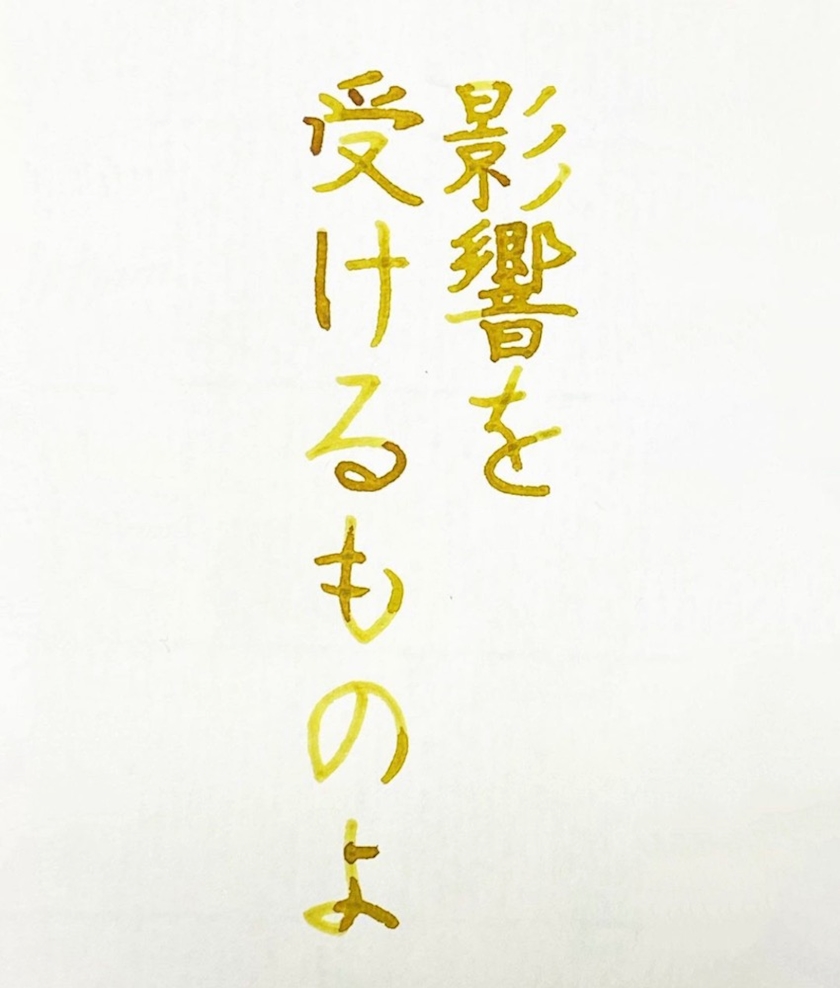 影響を
受けるものよ